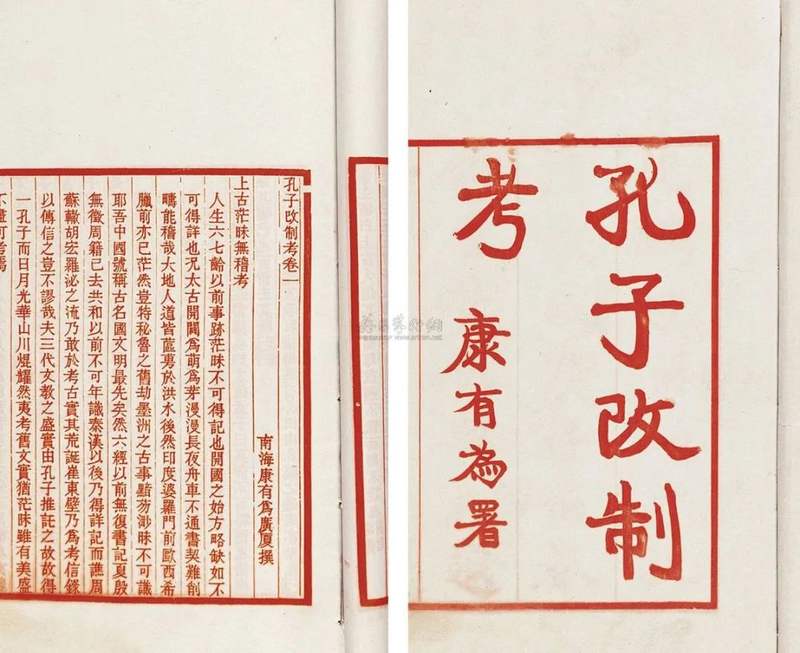 孔子改制
考
康有為署
孔子改制考卷一
南海康有爲廣厦撰
上古茫昧無稽考
人生六七齡以前事跡茫昧不可得記也開國之始方略缺如不
可得詳也况太古開闢爲萌爲芽漫漫長夜舟車不通書契難削
疇能稽哉大地人道皆蓲蕍於洪水後然印度婆羅門前歐西希
臘前亦已茫然豈特秘魯之舊劫墨洲之古事黯芴渺昧不可識
耶吾中國號稱古名國文明最先矣然六經以前無復書記夏殷
無徵周籍已去共和以前不可年識秦漢以後乃得詳記而譙周
蘇轍胡宏羅泌之流乃敢於考古實其荒誕崔東壁乃爲考信錄
以傳信之豈不謬哉夫三代文教之盛實由孔子推託之故故得
一孔子而日月光華山川焜耀然夷考舊文實猶茫昧雖有美盛
不盡可考焉